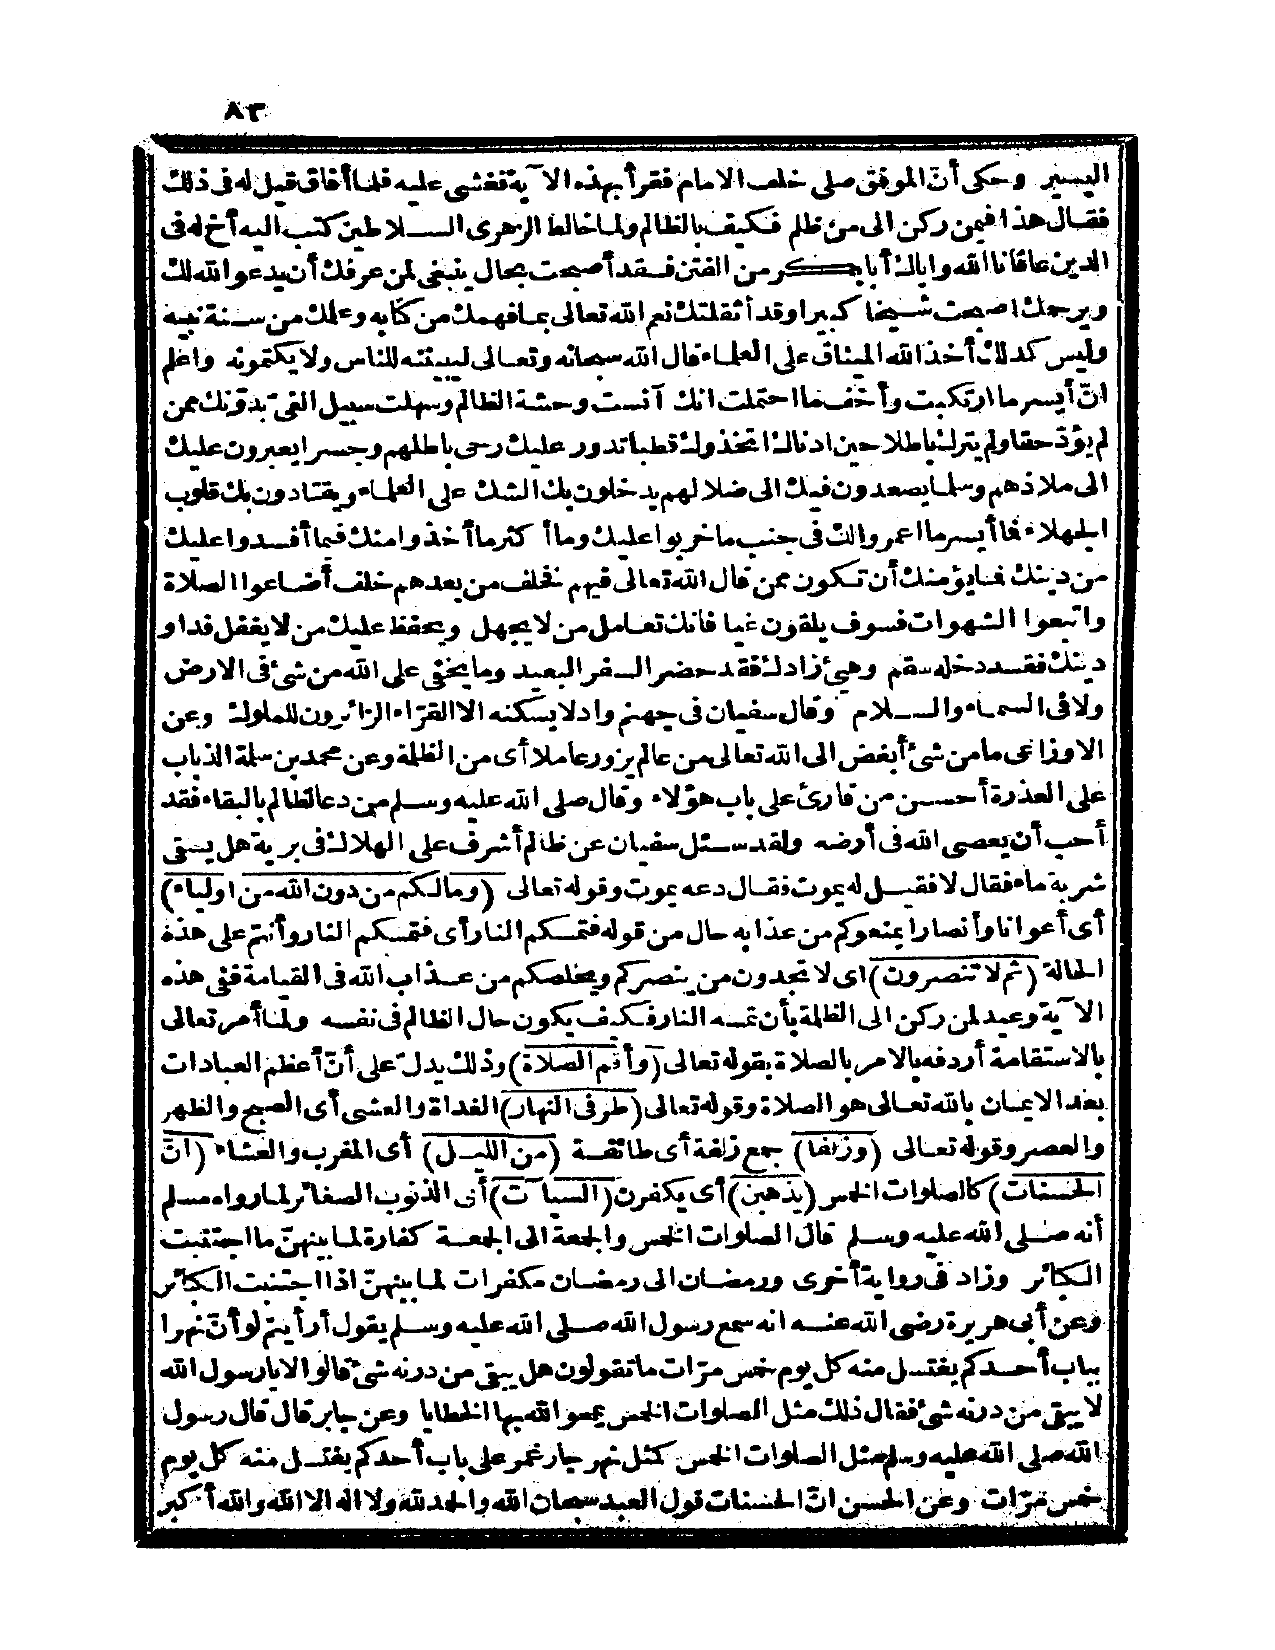 ٨٣
اليسير وحكى أنّ الموفق صلى خلف الامام فقرأ بهذه الآية فغشى عليه فلما أفاق قيل له فى ذلك
فقال هذا فيمن ركن الى من ظلم فكيف بالظالم ولما خالط الزهرى السلاطين كتب اليه أخ له فى
الدين عافانا الله واياك أبا بكر من الفتن فقد أصبحت بحال ينبغى لمن عرفك أن يدعو الله لك
ويرحمك اصبحت شيخا كبيرا وقد أثقلتك نعم الله تعالى بما فهمك من كتابه وعلمك من سنة نبيه
وليس كذلك أخذ الله الميثاق على العلماء قال الله سبحانه وتعالى ليبيننه للناس ولا يكتمونه واعلم
انّ أيسر ما ارتكبت وأخف ما احتملت انك آنست وحشة الظالم وسهلت سبيل الغى بدنوّك ممن
لم يؤدّ حقا ولم يترك باطلا حين ادناك اتخذوك قطبا تدور عليك رحى باطلهم وجسرا يعبرون عليك
الى ملاذهم وسلما يصعدون فيك الى ضلالهم يدخلون بك الشك على العلماء ويقتادون بك قلوب
الجهلاء فما أيسر ما اعمروا لك فى جنب ما خربوا عليك وما أكثر ما أخذوا منك فيما أفسدوا عليك
من دينك فما يؤمنك أن تكون ممن قال الله تعالى فيهم فخلف من بعدهم خلف أضاعوا الصلاة
واتبعوا الشهوات فسوف يلقون غيا فانك تعامل من لا يجهل ويحفظ عليك من لا يغفل فداو
دينك فقد دخله سقم وهئ زادك فقد حضر السفر البعيد وما يخفى على الله من شئ فى الارض
ولا فى السماء والسلام وقال سفيان فى جهنم واد لا يسكنه الا القرّاء الزائرون للملوك وعن
الاوزاعى ما من شئ أبغض الى الله تعالى من عالم يزور عاملا أى من الظلمة وعن محمد بن سلمة الذباب
على العذرة أحسن من قارئ على باب هؤلاء وقال صلى الله عليه وسلم من دعا لظالم بالبقاء فقد
أحب أن يعصى الله فى أرضه ولقد سئل سفيان عن ظالم أشرف على الهلاك فى برية هل يسقى
شربة ماء فقال لا فقيل له يموت فقال دعه يموت وقوله تعالى (ومالكم من دون الله من اولياء)
أى أعوانا وأنصارا يمنعوكم من عذابه حال من قوله فتمسكم النار أى فتمسكم النار وأنتم على هذه
الحالة (ثم لا تنصرون) اى لا تجدون من ينصركم ويخلصكم من عذاب الله فى القيامة ففى هذه
الآية وعيد لمن ركن الى الظلمة بأن تمسه النار فكيف يكون حال الظالم فى نفسه ولما أمر تعالى
بالاستقامة أردفه بالامر بالصلاة بقوله تعالى (وأقم الصلاة) وذلك يدلّ على أنّ أعظم العبادات
بعد الايمان بالله تعالى هو الصلاة وقوله تعالى (طرفى النهار) الغداة والعشى أى الصبح والظهر
والعصر وقوله تعالى (وزلفا) جمع زلفة أى طائفة (من الليل) أى المغرب والعشاء (انّ
الحسنات) كالصلوات الخمس (يذهبن) أى يكفرن (السيآت) أى الذنوب الصغائر لما رواه مسلم
أنه صلى الله عليه وسلم قال الصلوات الخمس والجمعة الى الجمعة كفارة لما بينهنّ ما اجتنبت
الكبائر وزاد فى رواية أخرى ورمضان الى رمضان مكفرات لما بينهنّ اذا اجتنبت الكبائر
وعن أبى هريرة رضى الله عنه انه سمع رسول الله صلى الله عليه وسلم يقول أرأيتم لو أنّ نهرا
بباب أحدكم يغتسل منه كل يوم خمس مرّات ما تقولون هل يبقى من درنه شئ قالوا لا يا رسول الله
لا يبقى من درنه شئ فقال ذلك مثل الصلوات الخمس يمحوا الله بها الخطايا وعن جابر قال قال رسول
الله صلى الله عليه وسلم مثل الصلوات الخمس كمثل نهر جار غمر على باب أحدكم يغتسل منه كل يوم
خمس مرّات وعن الحسن انّ الحسنات قول العبد سبحان الله والحمد لله ولا اله الا الله والله أكبر